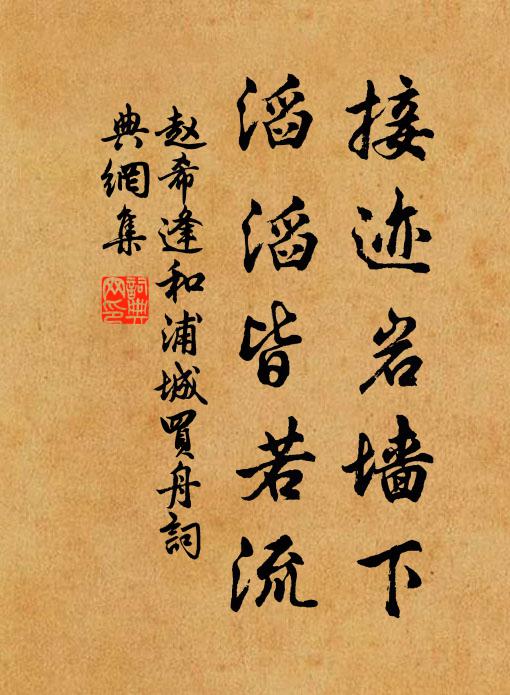 接迹岩墙下
滔滔皆若流
赵希逢和浦城買舟詞
典網集
詞典
网印